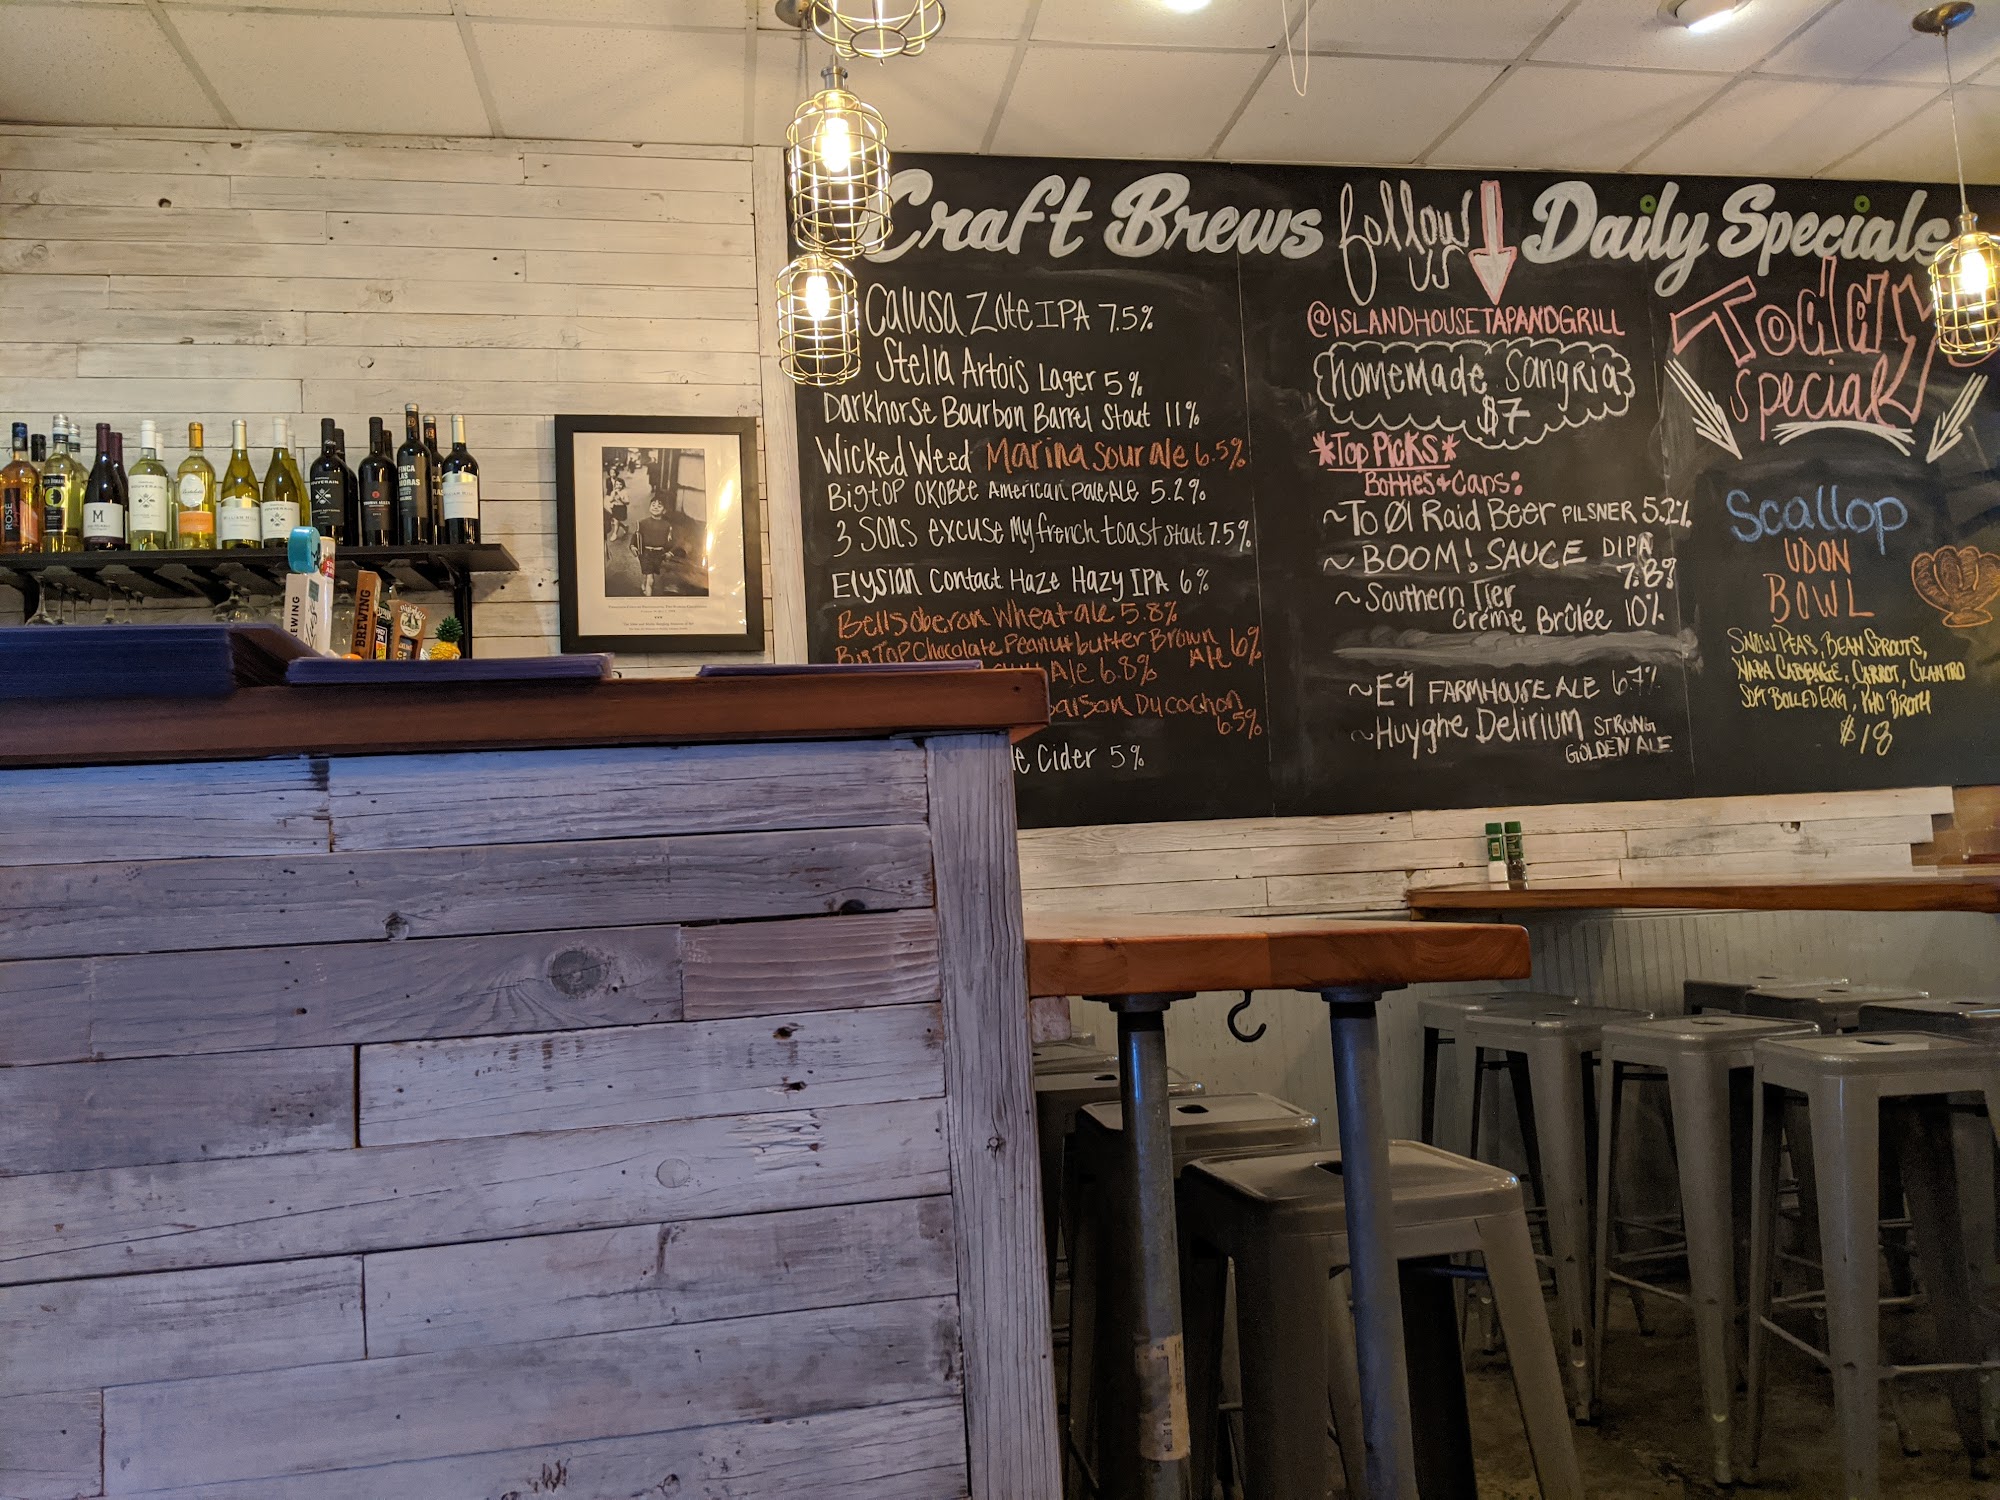 Craft Brews
Calusa Zote IPA 7.5%
Stella Artois Lager 5%
Darkhorse Bourbon Barrel Stout 11%
Wicked Weed Marina Sour Ale 6.5%
Bigtop Okobee American Pale Ale 5.2%
3 Sons excuse my french toast stout 7.5%
Elysian Contact Haze Hazy IPA 6%
Bells oberon Wheat ale 5.8%
Big Top Chocolate Peanut butter Brown
Ale 6%
Ale 6.8%
Saison Du cochon
6.5%
Cider 5%
follow
us
@ISLANDHOUSETAPANDGRILL
Homemade Sangria
$7
*Top Picks*
Bottles & Cans:
~To Øl Raid Beer PILSNER 5.2%
~BOOM! SAUCE DIPA
7.8%
~Southern Tier
Crème Brûlée 10%
~E9 FARMHOUSE ALE 6.7%
~Huyghe Delirium STRONG
GOLDEN ALE
Daily Specials
Today
Special
Scallop
UDON
BOWL
SNOW PEAS, BEAN SPROUTS,
NAPA CABBAGE, CARROT, CILANTRO
SOFT BOILED EGG, PHO BROTH
$18
ROSE
M
FINCA
LAS
MORAS
BREWING